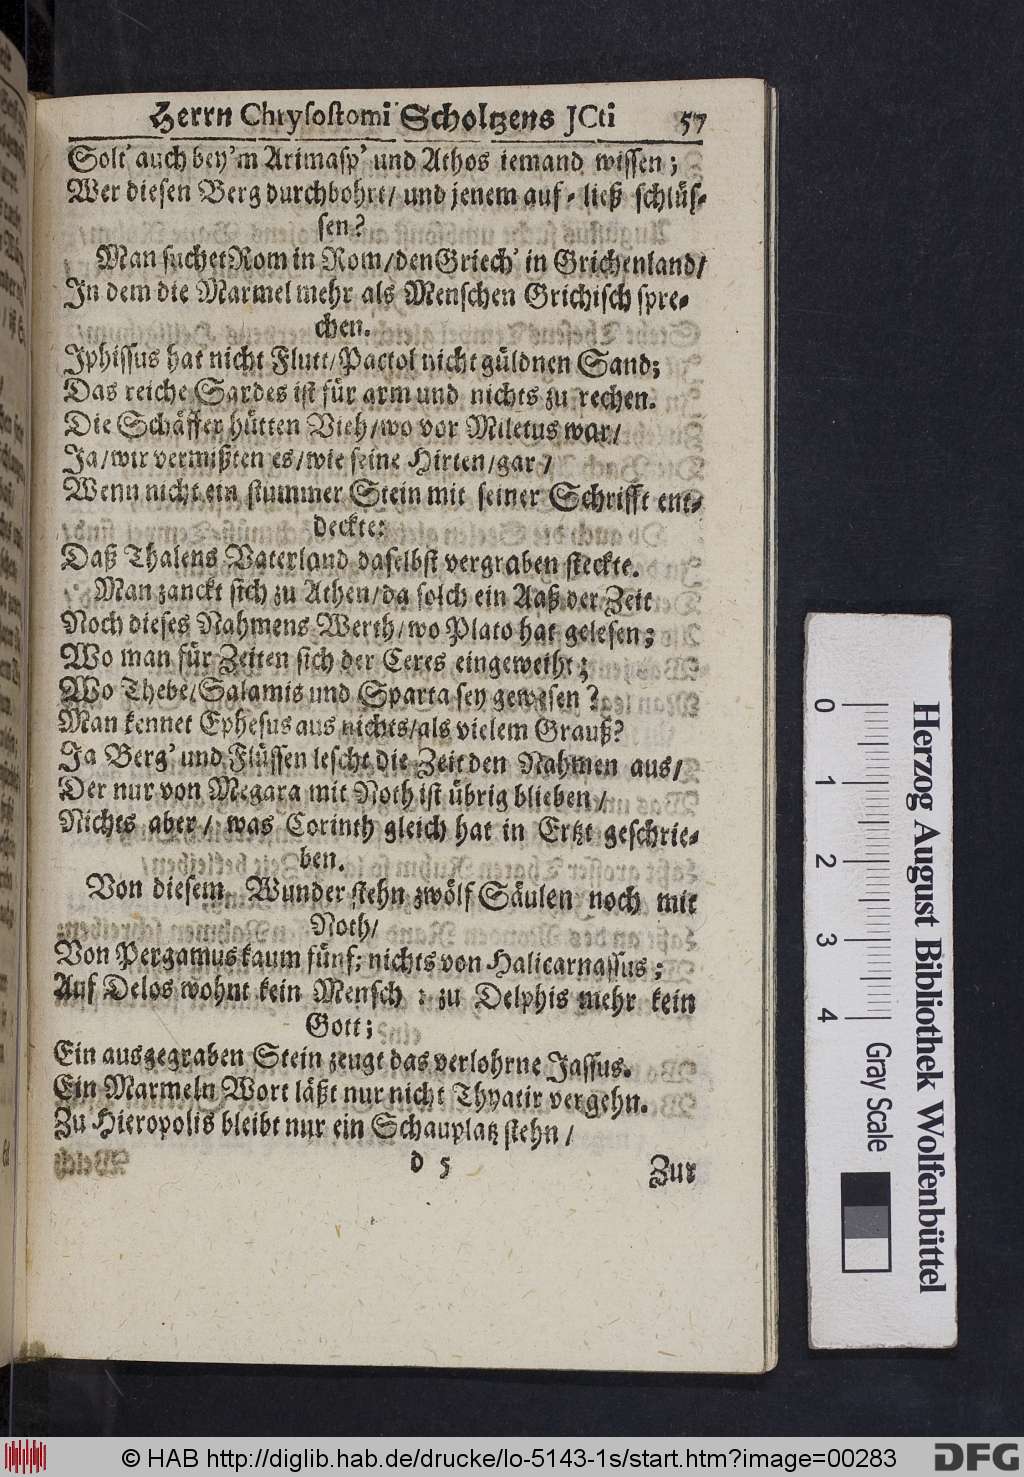 Herrn Chrysostomi Scholtzens JCti 57
Solt' auch bey'm Arimasp' und Athos iemand wissen;
Wer diesen Berg durchbohrt/ und jenem auf-ließ schlüs-
sen?
Man suchet Rom in Rom/den Griech' in Grichenland/
In dem die Marmel mehr als Menschen Grichisch spre-
chen.
Iphissus hat nicht Flutt/Pactol nicht güldnen Sand;
Das reiche Sardes ist für arm und nichts zu rechen.
Die Schäffer hütten Vieh/wo vor Miletus war/
Ja/wir vermißten es/wie seine Hirten/gar/
Wenn nicht ein stummer Stein mit seiner Schrifft ent-
deckte:
Daß Thalens Vaterland daselbst vergraben steckte.
Man zanckt sich zu Athen/da solch ein Aaß der Zeit
Noch dieses Nahmens Werth/wo Plato hat gelesen;
Wo man für Zeiten sich der Ceres eingeweiht;
Wo Thebe/Salamis und Sparta sey gewesen?
Man kennet Ephesus aus nichts/als vielem Grauß?
Ja Berg' und Flüssen lescht die Zeit den Nahmen aus/
Der nur von Megara mit Noth ist übrig blieben/
Nichts aber/ was Corinth gleich hat in Ertzt geschrie-
ben.
Von diesem Wunder stehn zwölf Säulen noch mit
Noth/
Von Pergamus kaum fünf; nichts von Halicarnassus;
Auf Delos wohnt kein Mensch: zu Delphis mehr kein
Gott;
Ein ausgegraben Stein zeugt das verlohrne Jassus.
Ein Marmeln Wort läßt nur nicht Thyatir vergehn.
Zu Hieropolis bleibt nur ein Schauplatz stehn/
d 5
Zur
Herzog August Bibliothek Wolfenbüttel
0 1 2 3 4
Gray Scale
© HAB http://diglib.hab.de/drucke/lo-5143-1s/start.htm?image=00283
DFG